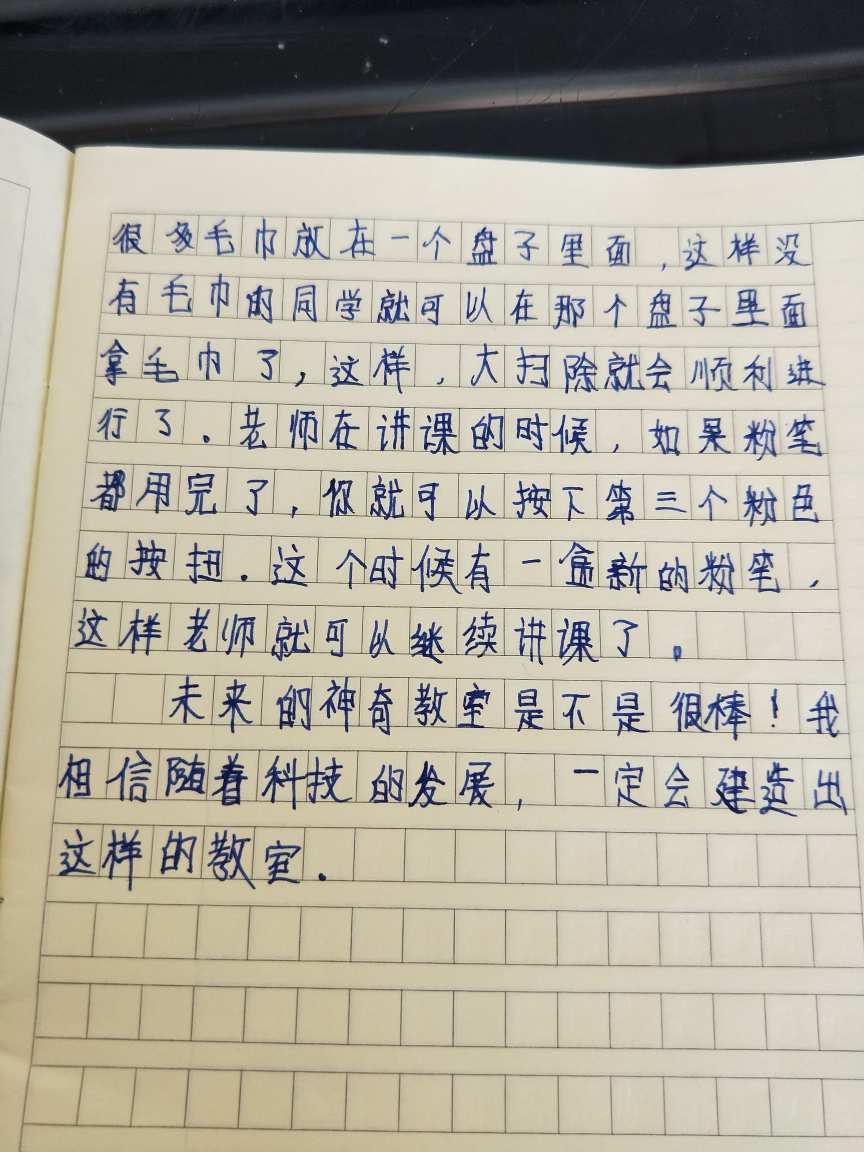 很多毛巾放在一个盘子里面，这样没
有毛巾的同学就可以在那个盘子里面
拿毛巾了，这样，大扫除就会顺利进
行了。老师在讲课的时候，如果粉笔
都用完了，你就可以按下第三个粉色
的按扭。这个时候有一盒新的粉笔，
这样老师就可以继续讲课了。
未来的神奇教室是不是很棒！我
相信随着科技的发展，一定会建造出
这样的教室。